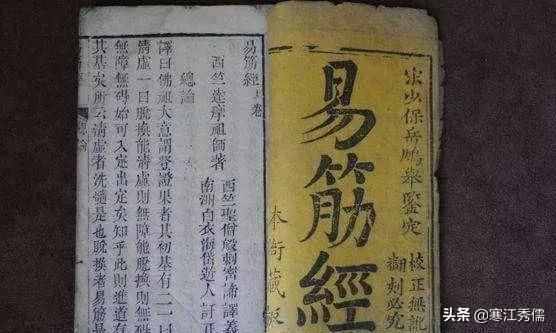 宋少保岳鵬舉鑒定
校正無訛
翻刻必究
易筋經
本衙藏板
易筋經上卷
西竺達摩祖師著
西竺聖僧般刺密諦譯義
南洲白衣海岱遊人訂正
總論
譯曰佛祖大意謂登證果者其初基有二一曰
清虛一曰脫換能清虛則無障能脫換則無
無障無礙始可入定出定矣知乎此則進道有
其基矣所云清虛者洗髓是也脫換者易筋是
头条 @寒江秀儒